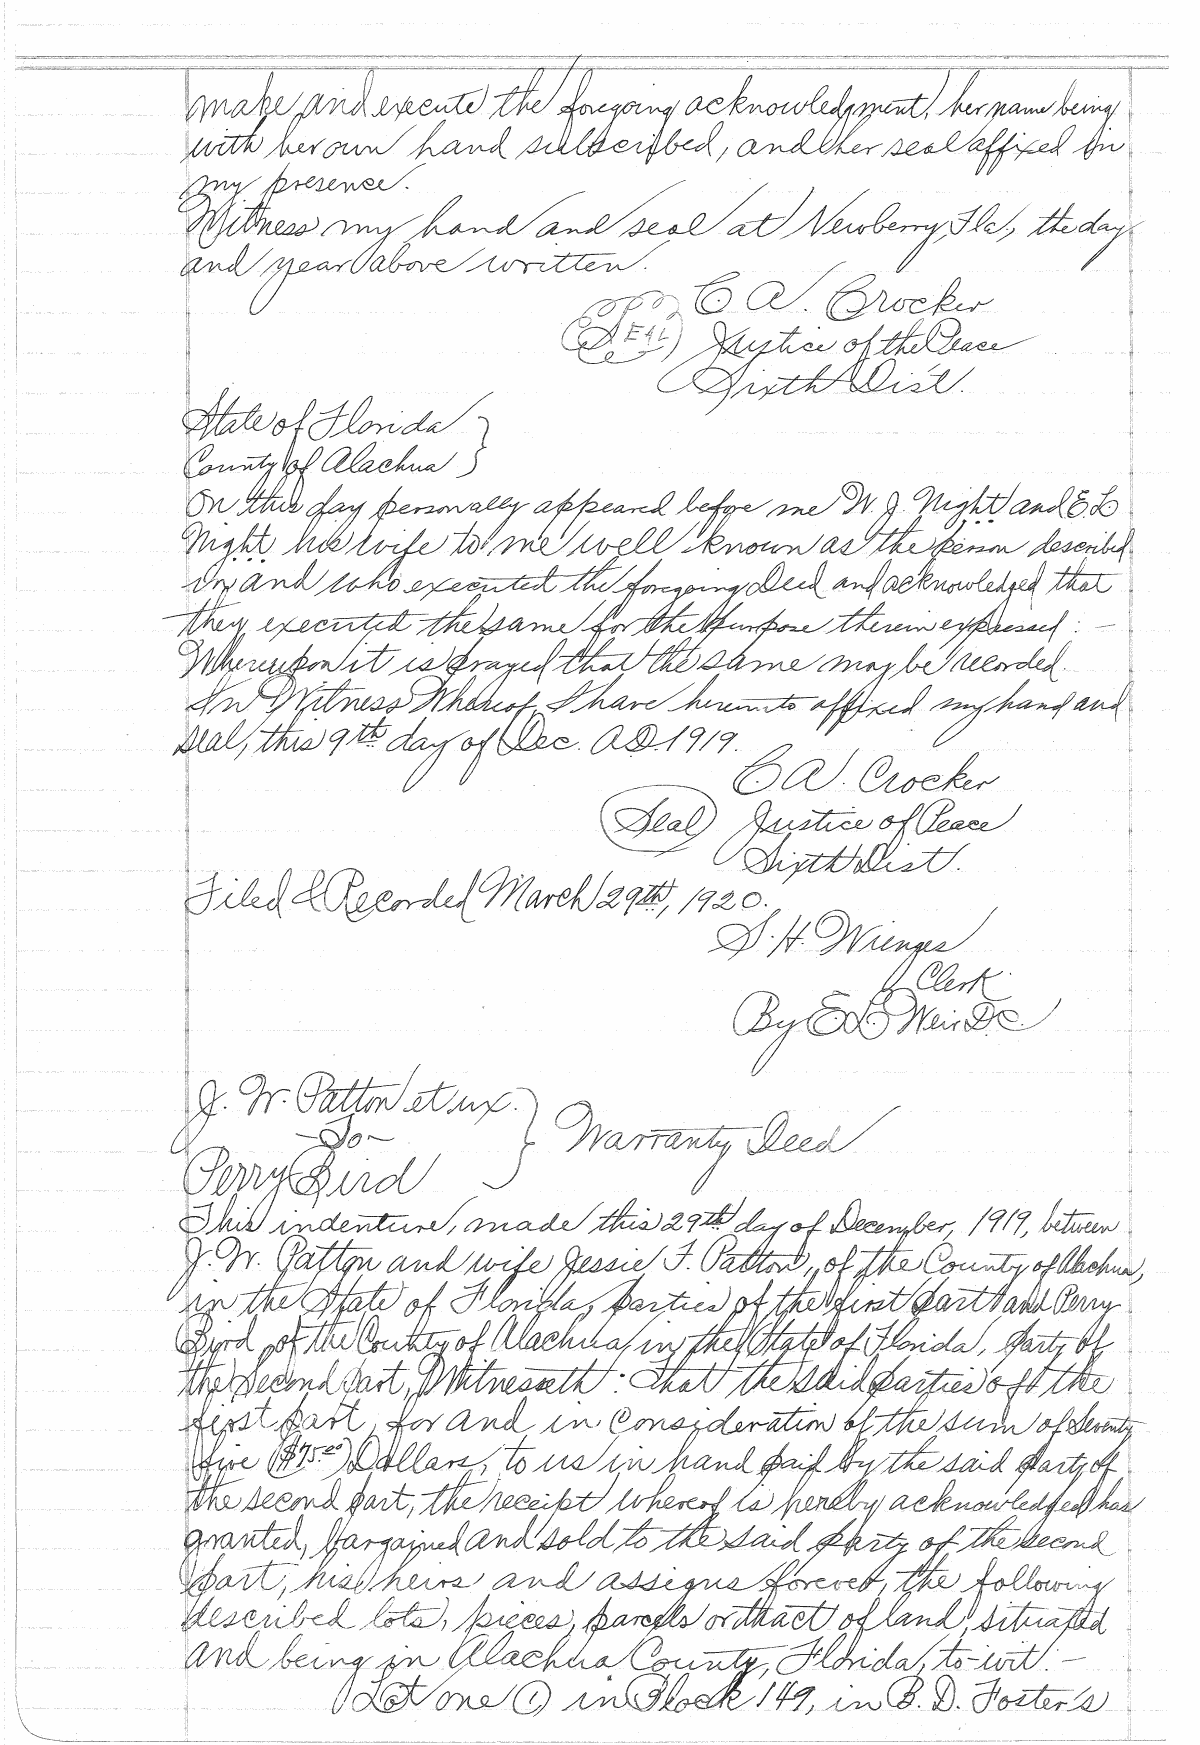 make and execute the foregoing acknowledgment, her name being
with her own hand subscribed, and her seal affixed in
my presence.
Witness my hand and seal at Newberry, Fla, the day
and year above written.
C A. Crocker
(SEAL) Justice of the Peace
Sixth Dist.
State of Florida }
County of Alachua }
On this day personally appeared before me W. J. Night and E L
Night his wife to me well known as the person described
in and who executed the foregoing Deed and acknowledged that
they executed the same for the purpose therein expressed: —
Whereupon it is prayed that the same may be recorded.
In Witness Whereof, I have hereunto affixed my hand and
seal, this 9th day of Dec. A.D. 1919.
C A. Crocker
(Seal) Justice of Peace
Sixth Dist.
Filed & Recorded March 29th, 1920.
S. H. Wienges
Clerk
By E L Weir D.C.
J. W. Patton et ux.
—To— } Warranty Deed
Perry Bird
This indenture, made this 29th day of December, 1919, between
J. W. Patton and wife Jessie F. Patton, of the County of Alachua,
in the State of Florida, parties of the first part and Perry
Bird, of the County of Alachua, in the State of Florida, party of
the second part, Witnesseth: That the said parties of the
first part, for and in consideration of the sum of Seventy
five ($75.00) Dollars, to us in hand paid by the said party of
the second part, the receipt whereof is hereby acknowledged has
granted, bargained and sold to the said party of the second
part, his heirs and assigns forever, the following
described lots, pieces, parcels or thact of land, situated
and being in Alachua County, Florida, to-wit: —
Lot one (1) in Block 149, in B. D. Foster's